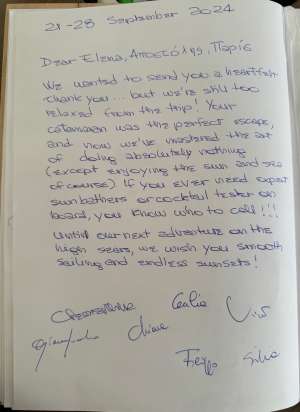 21-28 September 2024
Dear Elena, Αποστόλης, Παρίς
We wanted to send you a heartfelt
thank you... but we're still too
relaxed from the trip! Your
catamaran was the perfect escape,
and now we've mastered the art
of doing absolutely nothing
(except enjoying the sun and sea
of course) If you ever need expert
sunbathers or cocktail tester on
board, you know who to call!!!
Until our next adventure on the
high seas, we wish you smooth
sailing and endless sunsets!
Cecilia
Chiara
Silvia